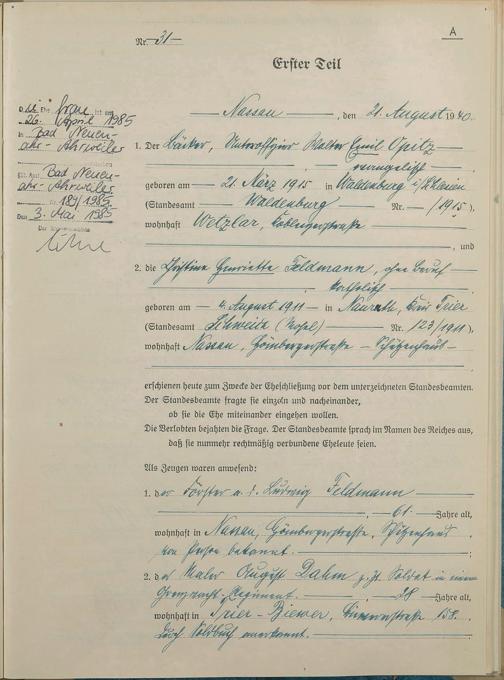 A
Nr. 31
Erster Teil
Nassau, den 21. August 1940.
Die Ehe Frau ist am
26. April 1985
in Bad Neuen-
ahr-Ahrweiler
Bad Neuen-
ahr-Ahrweiler
Nr. 189/1985.
Den 3. Mai 1985
Der Standesbeamte
1. Der Bäcker, Unteroffizier Walter Emil Opitz
evangelisch
geboren am 21. März 1915 in Waldenburg i/Schlesien
(Standesamt Waldenburg Nr. /1915),
wohnhaft Wetzlar, Koblenzerstraße
, und
2. die Christine Henriette Feldmann, ohne Beruf
katholisch
geboren am 4. August 1911 in Naurath, Kreis Trier
(Standesamt Schweich (Mosel) Nr. 123/1911),
wohnhaft Nassau, Hömbergerstraße - Schützenhaus -
erschienen heute zum Zwecke der Eheschließung vor dem unterzeichneten Standesbeamten.
Der Standesbeamte fragte sie einzeln und nacheinander,
ob sie die Ehe miteinander eingehen wollen.
Die Verlobten bejahten die Frage. Der Standesbeamte sprach im Namen des Reiches aus,
daß sie nunmehr rechtmäßig verbundene Eheleute seien.
Als Zeugen waren anwesend:
1. der Förster a. d. Ludwig Feldmann
, 61 Jahre alt,
wohnhaft in Nassau, Hömbergerstraße, Schützenhaus.
von Person bekannt. ;
2. der Maler August Dahm z. Zt. Soldat in einem
Regiment. , 28 Jahre alt,
wohnhaft in Trier-Biewer, 158.
durch Soldbuch anerkannt.